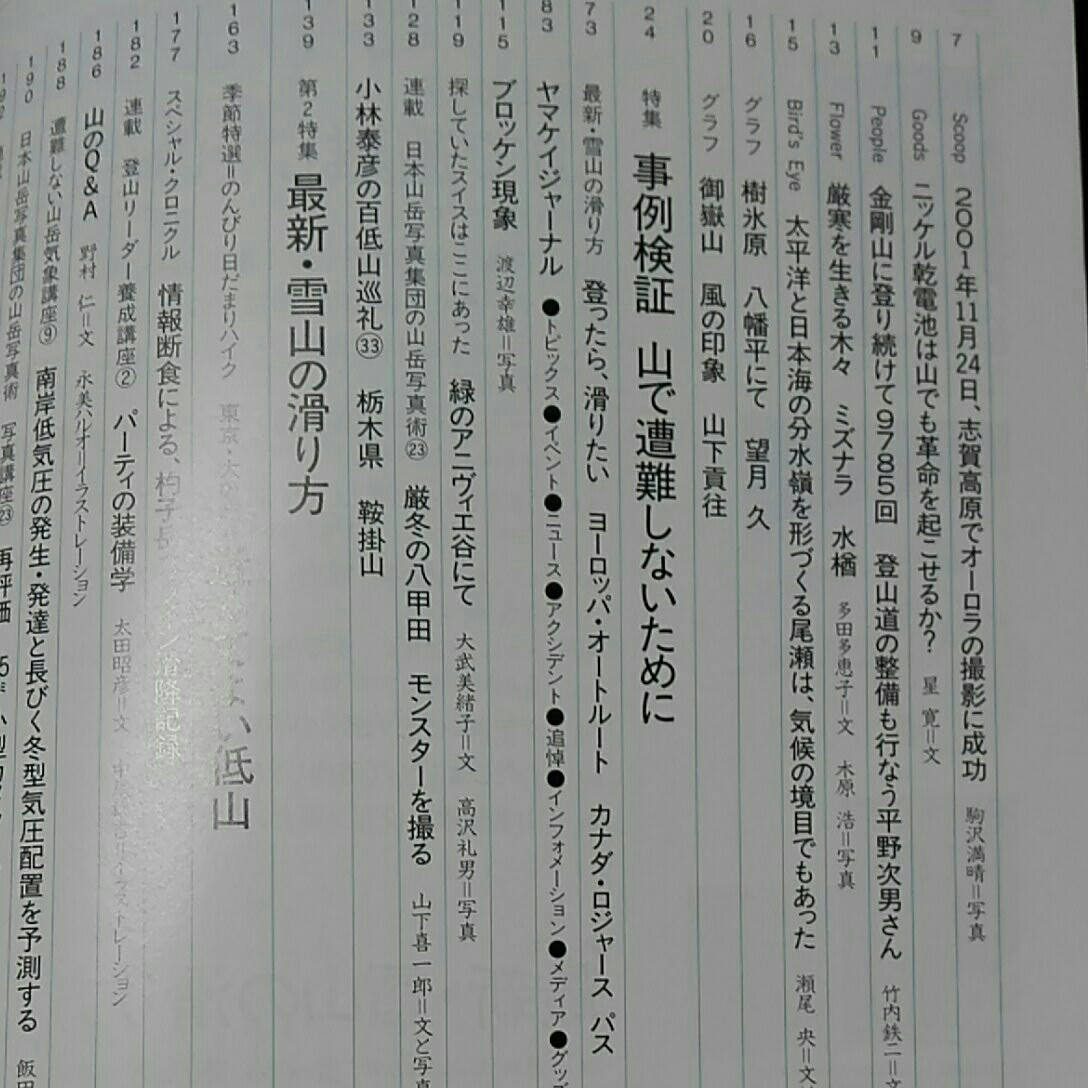 7 Scoop 2001年11月24日、志賀高原でオーロラの撮影に成功 駒沢満晴=写真
9 Goods ニッケル乾電池は山でも革命を起こせるか? 星 寛=文
11 People 金剛山に登り続けて9785回 登山道の整備も行なう平野次男さん 竹内鉄二=文
13 Flower 厳寒を生きる木々 ミズナラ 水楢 多田多恵子=文 木原 浩=写真
15 Bird's Eye 太平洋と日本海の分水嶺を形づくる尾瀬は、気候の境目でもあった 瀬尾 央=文
16 グラフ 樹氷原 八幡平にて 望月 久
20 グラフ 御嶽山 風の印象 山下貢往
24 特集 事例検証 山で遭難しないために
73 最新・雪山の滑り方 登ったら、滑りたい ヨーロッパ・オートルート カナダ・ロジャース パス
83 ヤマケイジャーナル ●トピックス●イベント●ニュース●アクシデント●追悼●インフォメーション●メディア●グッズ
115 ブロッケン現象 渡辺幸雄=写真
119 探していたスイスはここにあった 緑のアニヴィエ谷にて 大武美緒子=文 高沢礼男=写真
128 連載 日本山岳写真集団の山岳写真術㉓ 厳冬の八甲田 モンスターを撮る 山下喜一郎=文と写真
133 小林泰彦の百低山巡礼㉝ 栃木県 鞍掛山
139 第2特集 最新・雪山の滑り方
163 季節特選=のんびり日だまりハイク 東京・大 い低山
177 スペシャル・クロニクル 情報断食による、杓子岳 滑降記録
182 連載 登山リーダー養成講座② パーティの装備学 太田昭彦=文 イラストレーション
186 山のQ&A 野村 仁=文 永美ハルオ=イラストレーション
188 遭難しない山岳気象講座⑨ 南岸低気圧の発生・発達と長びく冬型気圧配置を予測する 飯田
190 日本山岳写真集団の山岳写真術 写真講座㉓ 再評価
192